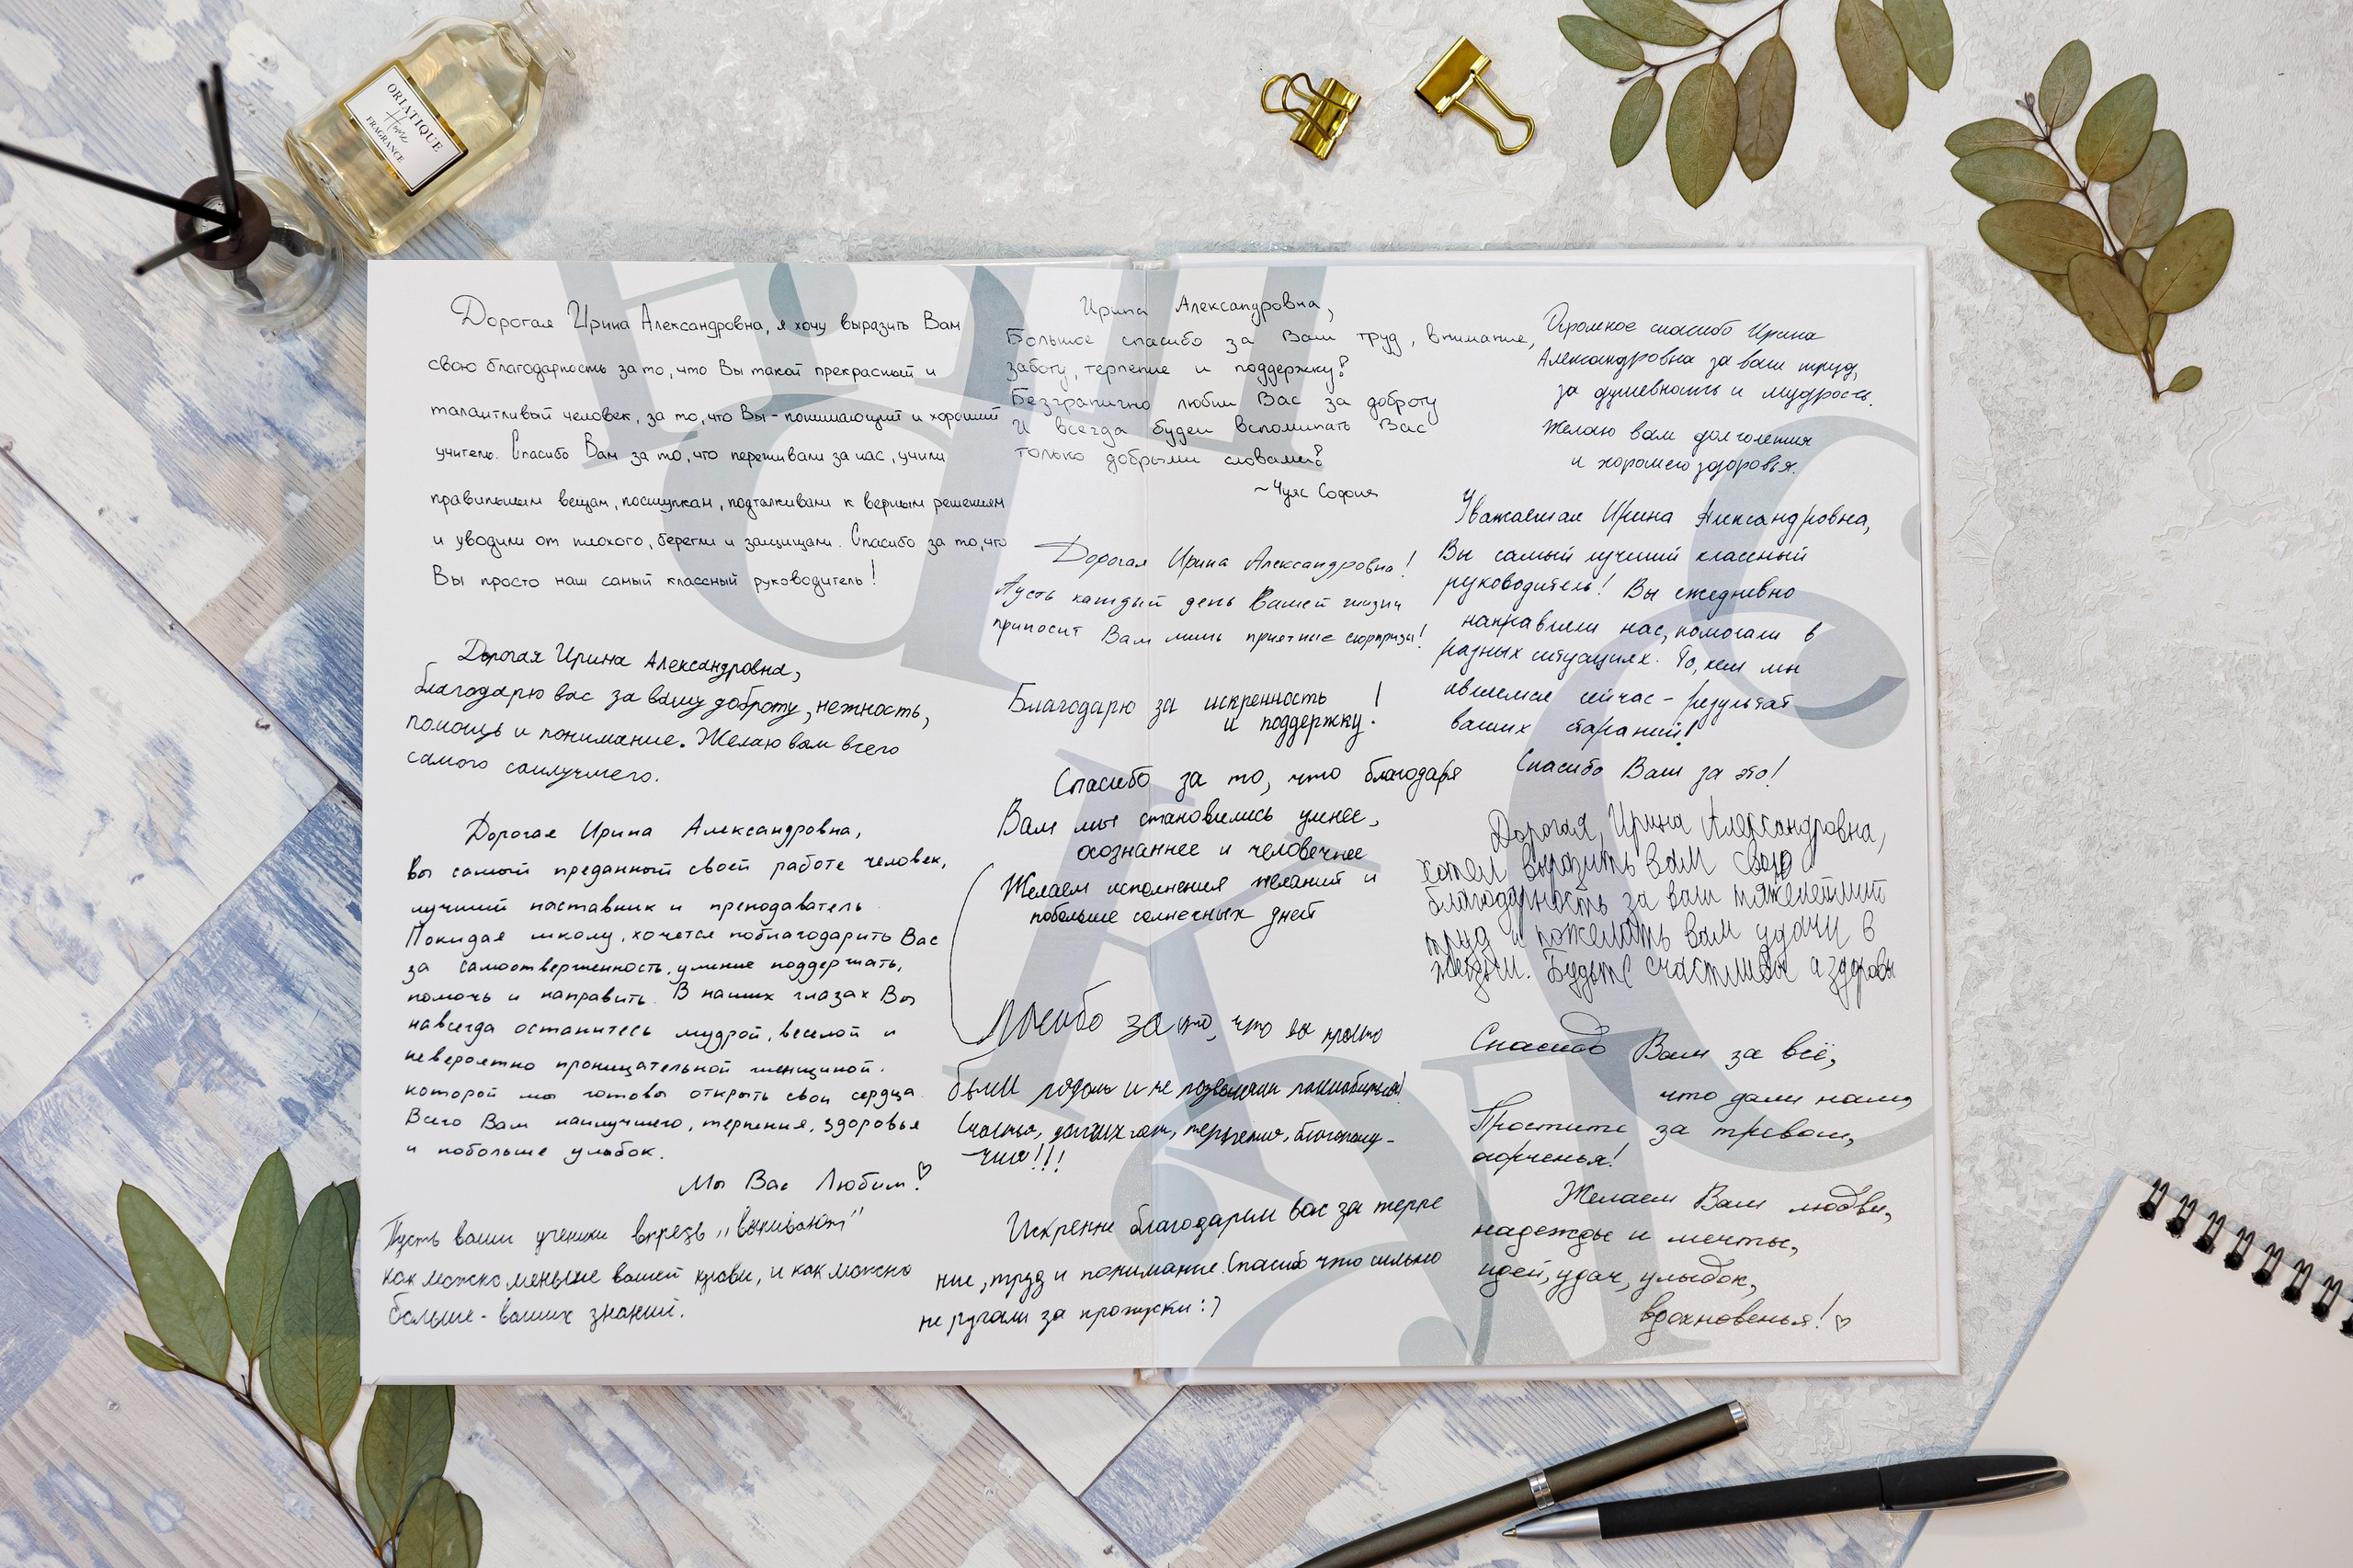 ORIATIQUE
Home
FRAGRANCE
Дорогая Ирина Александровна, я хочу выразить Вам
свою благодарность за то, что Вы такой прекрасный и
талантливый человек, за то, что Вы - понимающий и хороший
учитель. Спасибо Вам за то, что переживали за нас, учили
правильным вещам, поступкам, подталкивали к верным решениям
и уводили от плохого, берегли и защищали. Спасибо за то, что
Вы просто наш самый классный руководитель!
Дорогая Ирина Александровна,
благодарю вас за вашу доброту, нежность,
помощь и понимание. Желаю вам всего
самого наилучшего.
Дорогая Ирина Александровна,
вы самый преданный своей работе человек,
лучший наставник и преподаватель.
Покидая школу, хочется поблагодарить Вас
за самоотверженность, умение поддержать,
помочь и направить. В наших глазах Вы
навсегда останитесь мудрой, веселой и
невероятно проницательной женщиной,
которой мы готовы открыть свои сердца.
Всего Вам наилучшего, терпения, здоровья
и побольше улыбок.
Мы Вас Любим!
Пусть ваши ученики впредь „выпивают"
как можно меньше вашей крови, и как можно
больше - ваших знаний.
Ирина Александровна,
Большое спасибо за Ваш труд, внимание,
заботу, терпение и поддержку!
Безгранично любим Вас за доброту
И всегда будем вспоминать Вас
только добрыми словами!
~Чуяс София
Дорогая Ирина Александровна!
Пусть каждый день Вашей жизни
приносит Вам лишь приятные сюрпризы!
Благодарю за искренность
и поддержку!
Спасибо за то, что благодаря
Вам мы становились умнее,
осознаннее и человечнее
Желаем исполнения желаний и
побольше солнечных дней
Спасибо за то, что вы просто
были рядом и не позволяли
Счастья, долгих лет, терпения, благополу-
чия!!!
Искренне благодарим вас за терпе
ние, труд и понимание. Спасибо что сильно
не ругали за пропуски :)
Огромное спасибо Ирина
Александровна за ваш труд,
за душевность и мудрость.
Желаю вам долголетия
и хорошего здоровья.
Уважаемая Ирина Александровна,
Вы самый лучший классный
руководитель! Вы ежедневно
направляли нас, помогали в
разных ситуациях. То, кем мы
являемся сейчас - результат
ваших стараний!
Спасибо Вам за это!
Дорогая, Ирина Александровна,
хотел выразить вам свою
благодарность за ваш тяжелейший
труд и пожелать вам удачи в
жизни. Будьте счастливы и здоровы
Спасибо Вам за всё,
что дали нам,
Простите за тревоги,
огорченья!
Желаем Вам любви,
надежды и мечты,
идей, удач, улыбок,
вдохновенья!